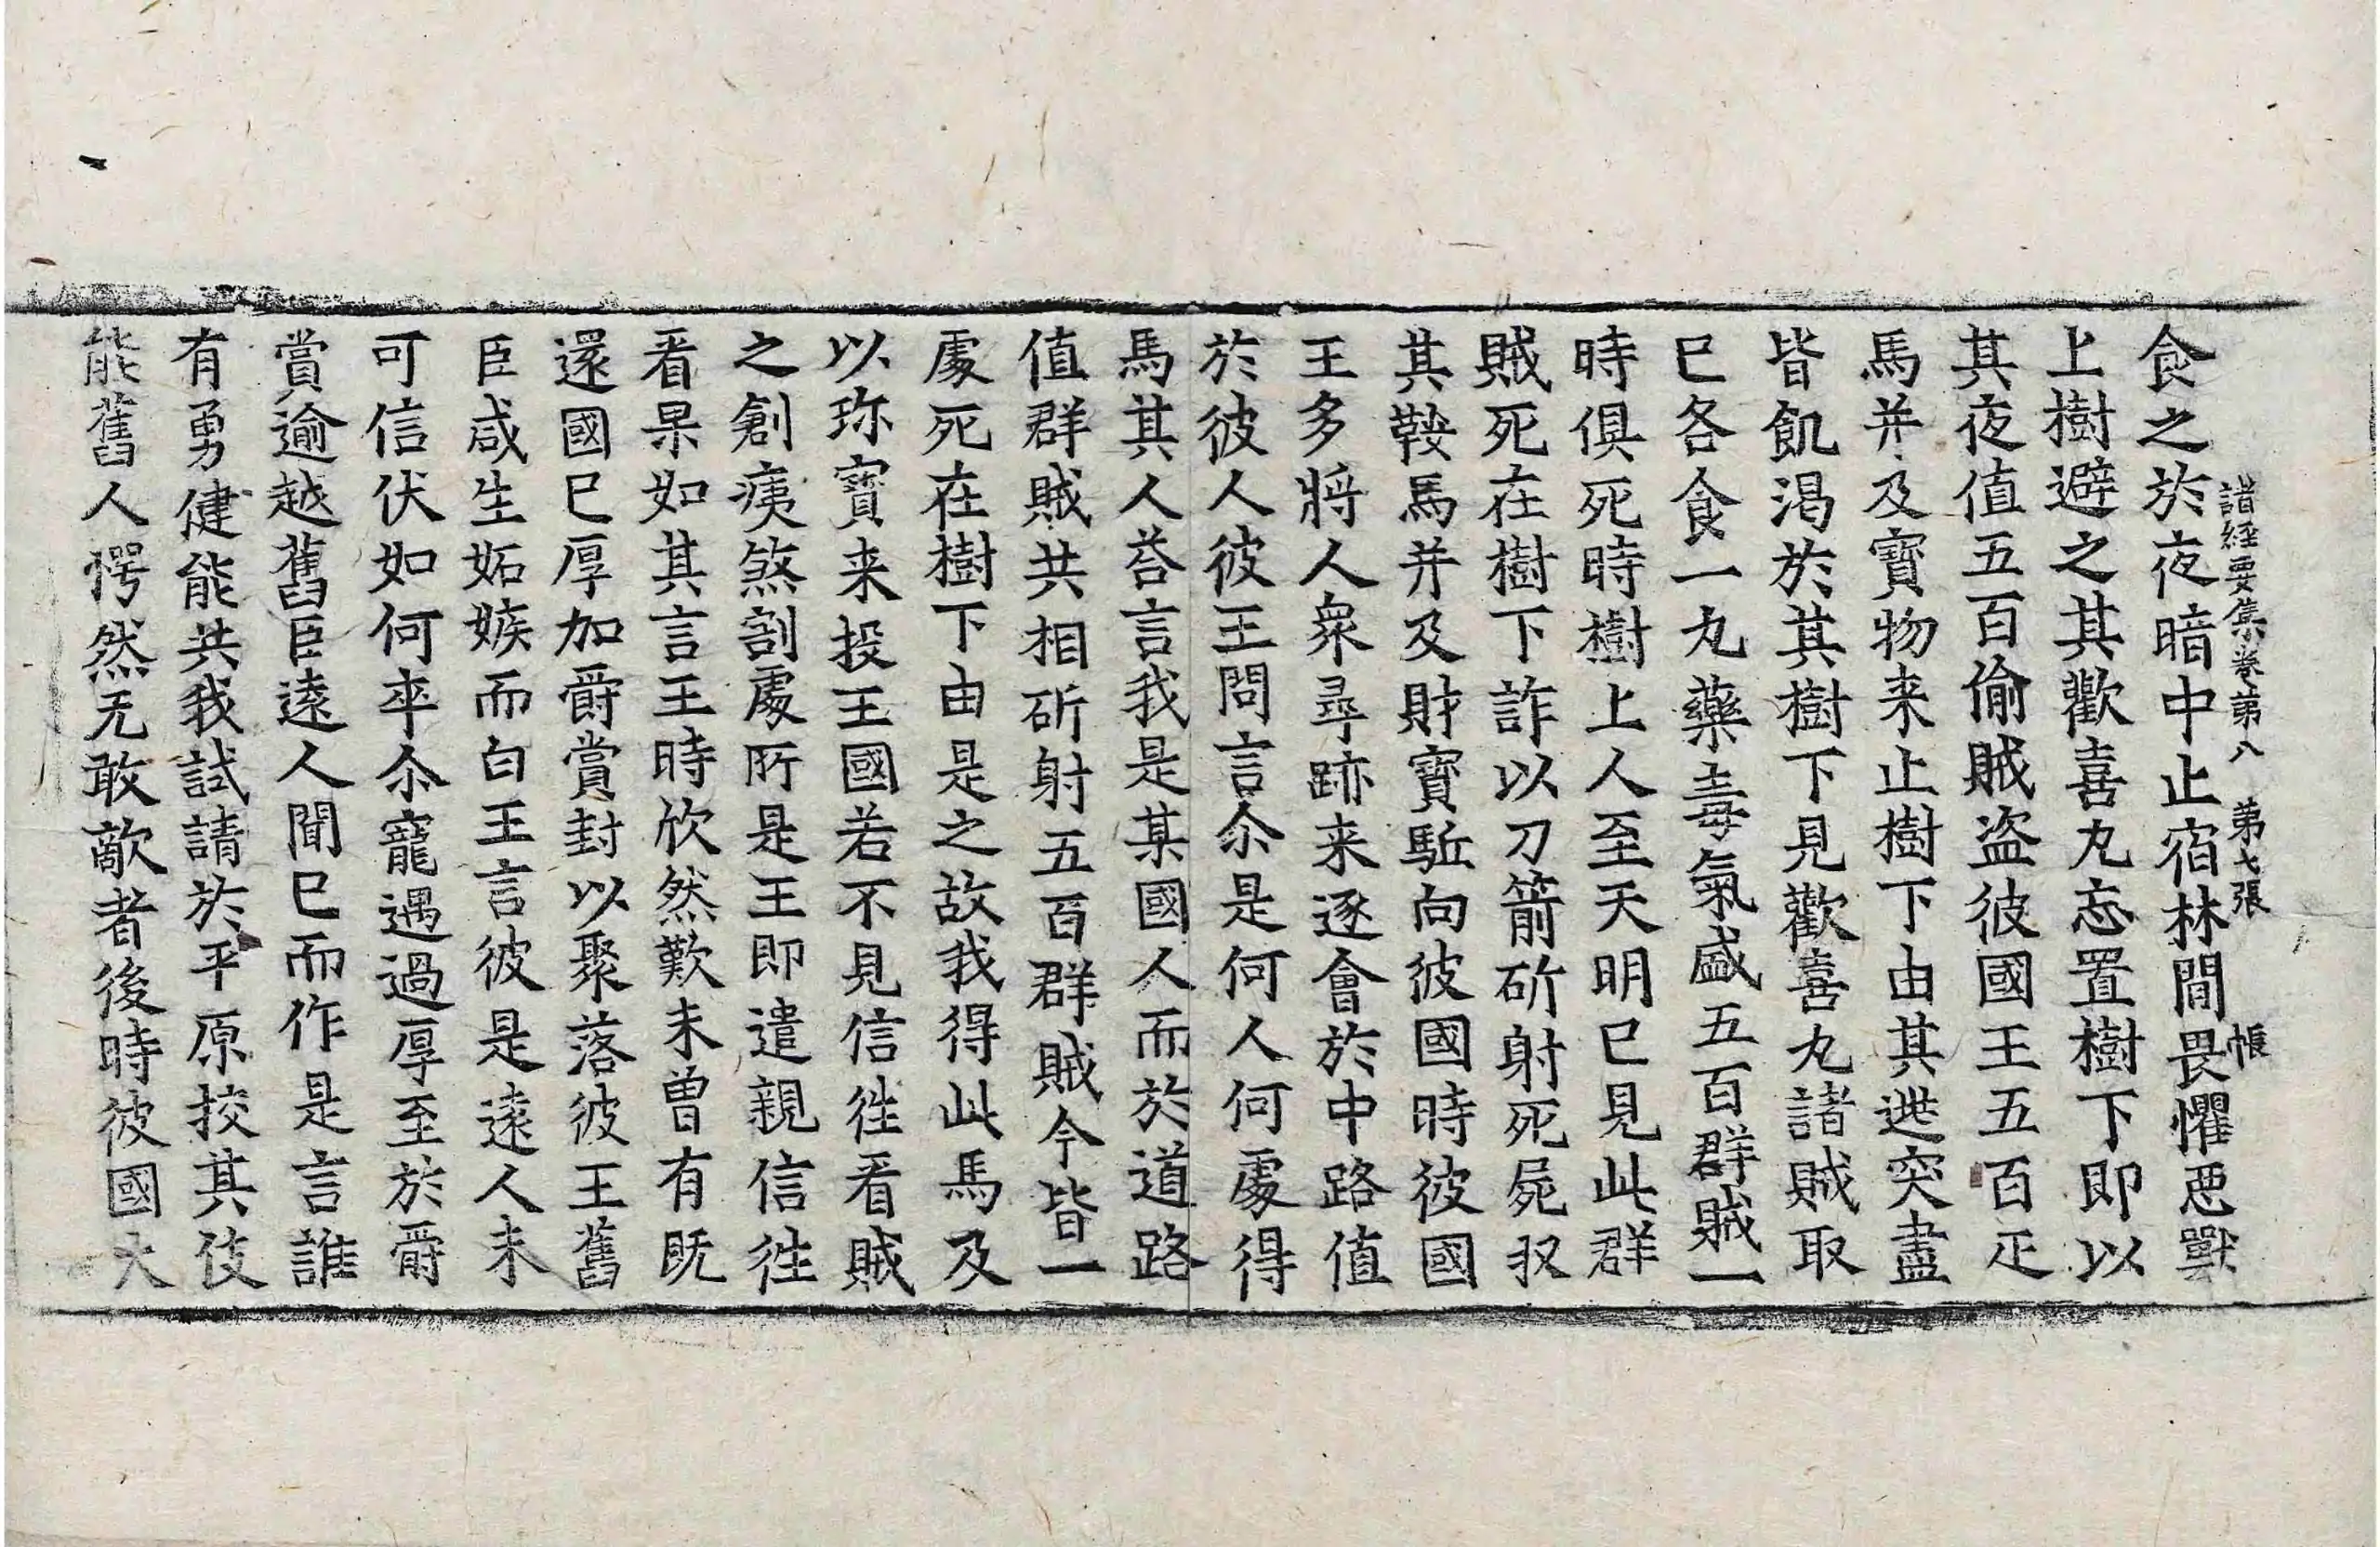 諸經要集卷第八　第七張　帳
食之於夜暗中止宿林間畏懼惡獸
上樹避之其歡喜丸忘置樹下即以
其夜值五百偷賊盜彼國王五百疋
馬并及寶物来止樹下由其逃突盡
皆飢渴於其樹下見歡喜丸諸賊取
已各食一丸藥毒氣盛五百群賊一
時俱死時樹上人至天明已見此群
賊死在樹下詐以刀箭斫射死屍収
其鞍馬并及財寶駈向彼國時彼國
王多將人衆尋跡来逐會於中路值
於彼人彼王問言尒是何人何處得
馬其人荅言我是某國人而於道路
值群賊共相斫射五百群賊今皆一
處死在樹下由是之故我得此馬及
以珎寶来投王國若不見信徃看賊
之創痍煞剖處所是王即遣親信徃
看果如其言王時欣然歎未曾有既
還國已厚加爵賞封以聚落彼王舊
臣咸生妬嫉而白王言彼是遠人未
可信伏如何卒尒寵遇過厚至於爵
賞逾越舊臣遠人聞已而作是言誰
有勇健能共我試請於平原挍其伎
能舊人愕然无敢敵者後時彼國大